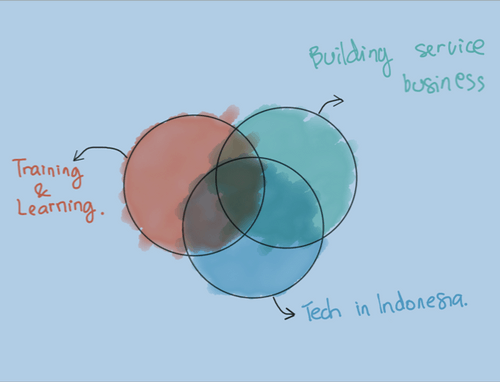 Building service
business
Training
&
Learning.
Tech in Indonesia.